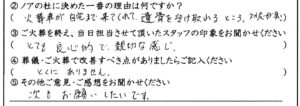 ②ノアの杜に決めた一番の理由は何ですか?
火葬車が自宅まで来てくれて、遺骨を受け取れるところ。
③ご火葬を終え、当日担当させて頂いたスタッフの印象をお聞かせください
とても良心的で、親切な感じ。
④葬儀・ご火葬で改善すべき点がありましたらご記入ください
とくにありません。
⑤その他ご意見・ご感想をお聞かせください
次もお願いしたいです。